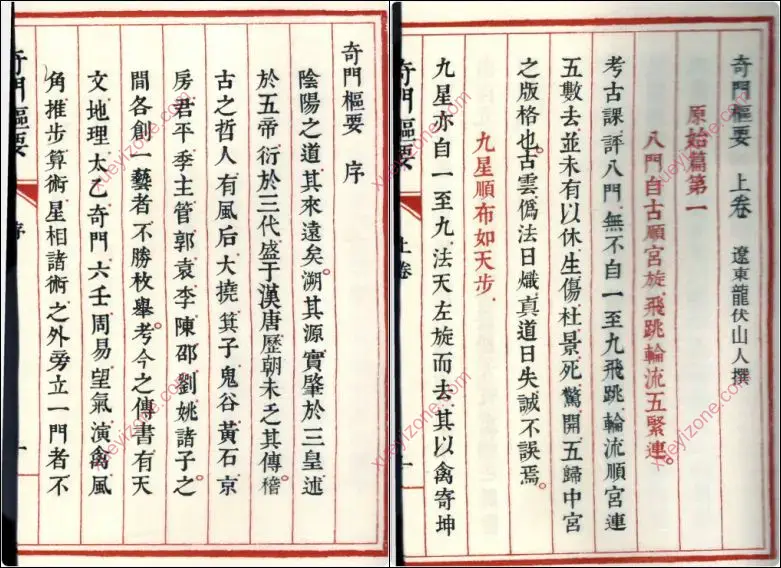 奇門樞要 序
陰陽之道其來遠矣。溯其源實肇於三皇述
於五帝衍於三代盛于漢唐歷朝未乏其傳。稽
古之哲人有風后大撓箕子鬼谷黃石京
房君平季主管郭袁李陳邵劉姚諸子之
間各創一藝者不勝枚舉。考今之傳書有天
文地理太乙奇門六壬周易望氣演禽風
角推步算術星相諸術之外旁立一門者不
奇門樞要
序
一
奇門樞要 上卷 遼東龍伏山人撰
原始篇第一
八門自古順宮旋飛跳輪流五緊連。
考古課評八門無不自一至九飛跳輪流順宮連
五數去並未有以休生傷杜景死驚開五歸中宮
之版格也。古雲僞法日熾真道日失誠不誤焉。
九星順布如天步.
九星亦自一至九法天左旋而去其以禽寄坤
奇門樞要
上卷
一
xueyizone.com
xueyizone.com
xueyizone.com
xueyizone.com
xueyizone.com
xueyizone.com
xueyizone.com
xueyizone.com